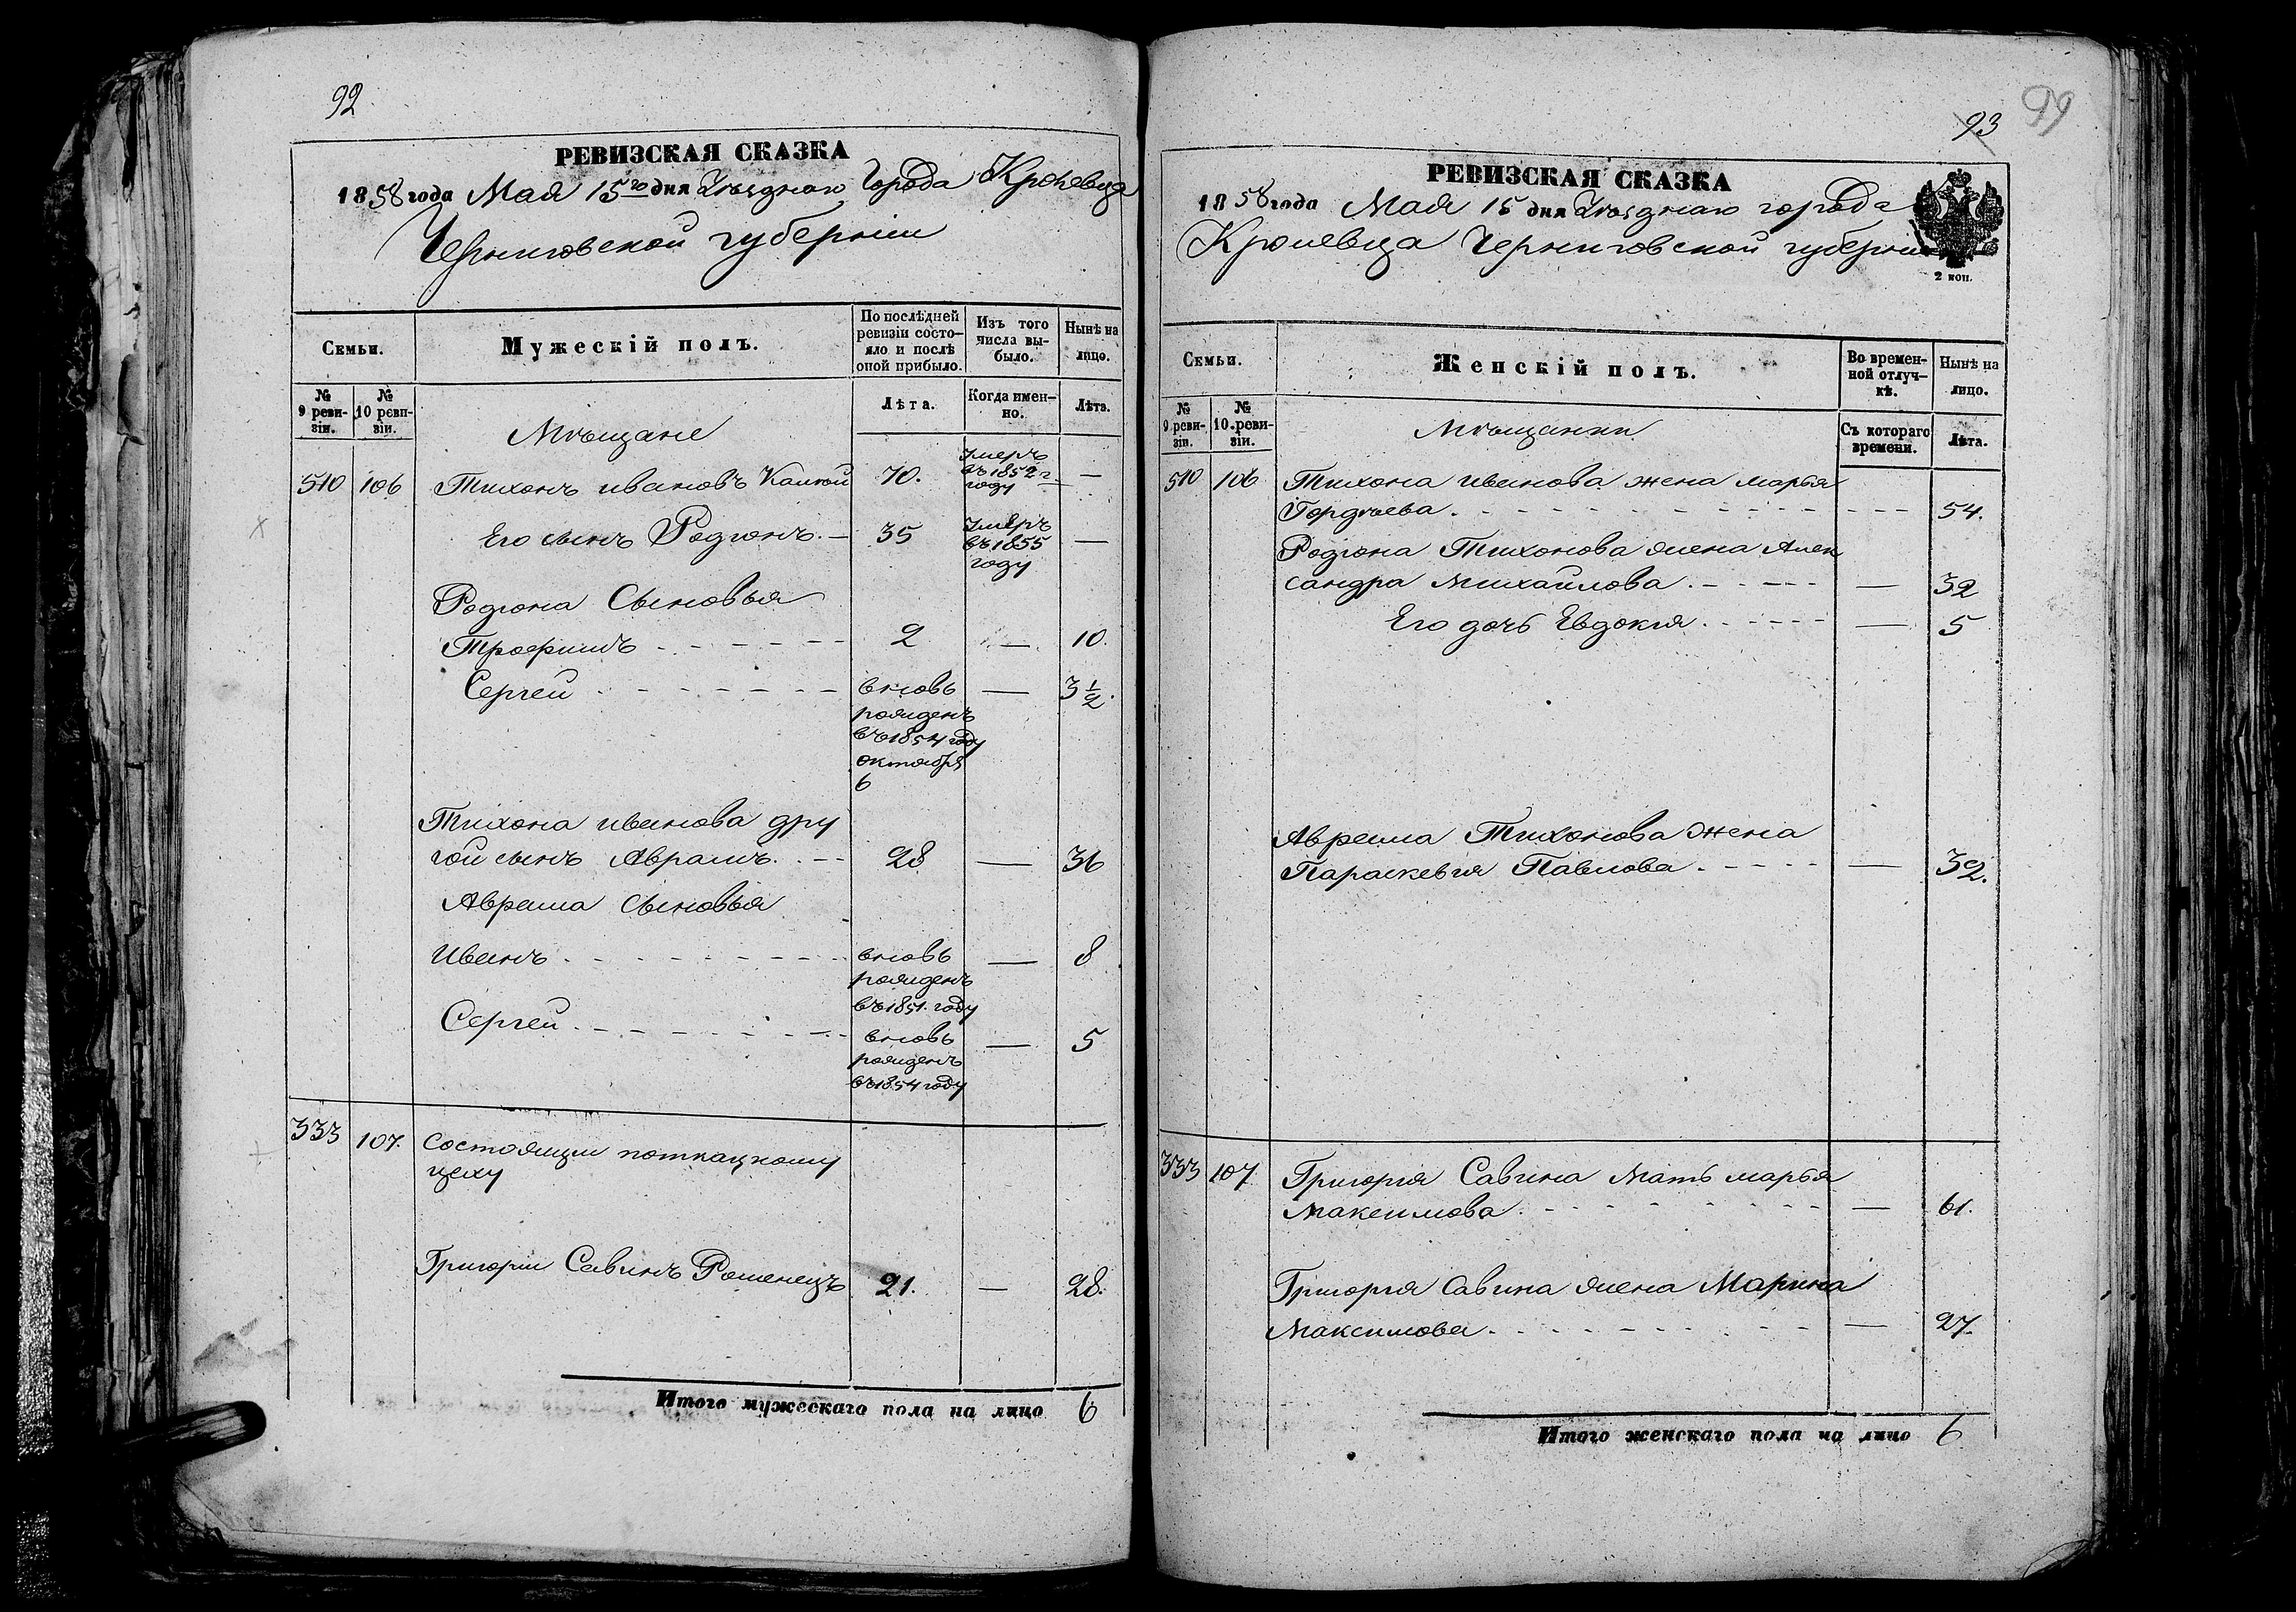 92
РЕВИЗСКАЯ СКАЗКА
1858 года Мая 15го дня Уѣзднаго Города Кролевца
Черниговской губерніи
Семьи.
Мужескій полъ.
По послѣдней ревизіи состояло и послѣ оной прибыло.
Изъ того числа выбыло.
Нынѣ на лицо.
№ 9 ревизіи.
№ 10 ревизіи.
Лѣта.
Когда именно.
Лѣта.
Мѣщане
510 106 Тихонъ ивановъ 70. Умеръ въ 1852 г. году —
Его сынъ Родіонъ. — 35 Умеръ въ 1855 году —
Родіона Сыновья
Трофимъ 2 — 10.
Сергей вновь рожденъ въ 1854 году октября 6 — 3 1/2.
Тихона иванова дру
гой сынъ Аврамъ. 28 — 36
Аврама Сыновья
Иванъ. вновь рожденъ въ 1851. году — 8
Сергей. вновь рожденъ въ 1854 году — 5
333 107. Состоящи поткацкому
цеху
Григорій Савинъ Роменецъ 21. — 28.
Итого мужескаго пола на лицо 6
99
93
РЕВИЗСКАЯ СКАЗКА
1858 года Мая 15 дня Уѣзднаго города
Кролевца Черниговской губерніи
2 коп.
Семьи.
Женскій полъ.
Во временной отлучкѣ.
Нынѣ на лицо.
№ 9 ревизіи.
№ 10 ревизіи.
Съ котораго времени.
Лѣта.
Мѣщанки
510 106 Тихона иванова жена марья
Гордѣева. — 54.
Родіона Тихонова жена Алек
сандра Михайлова. — 32
Его дочь Евдокія. — 5
Аврама Тихонова жена
Параскевія Павлова. — 32.
333 107 Григорія Савина Мать марья
Максимова. — 61.
Григорія Савина жена Марина
Максимова. — 27.
Итого женскаго пола на лицо 6